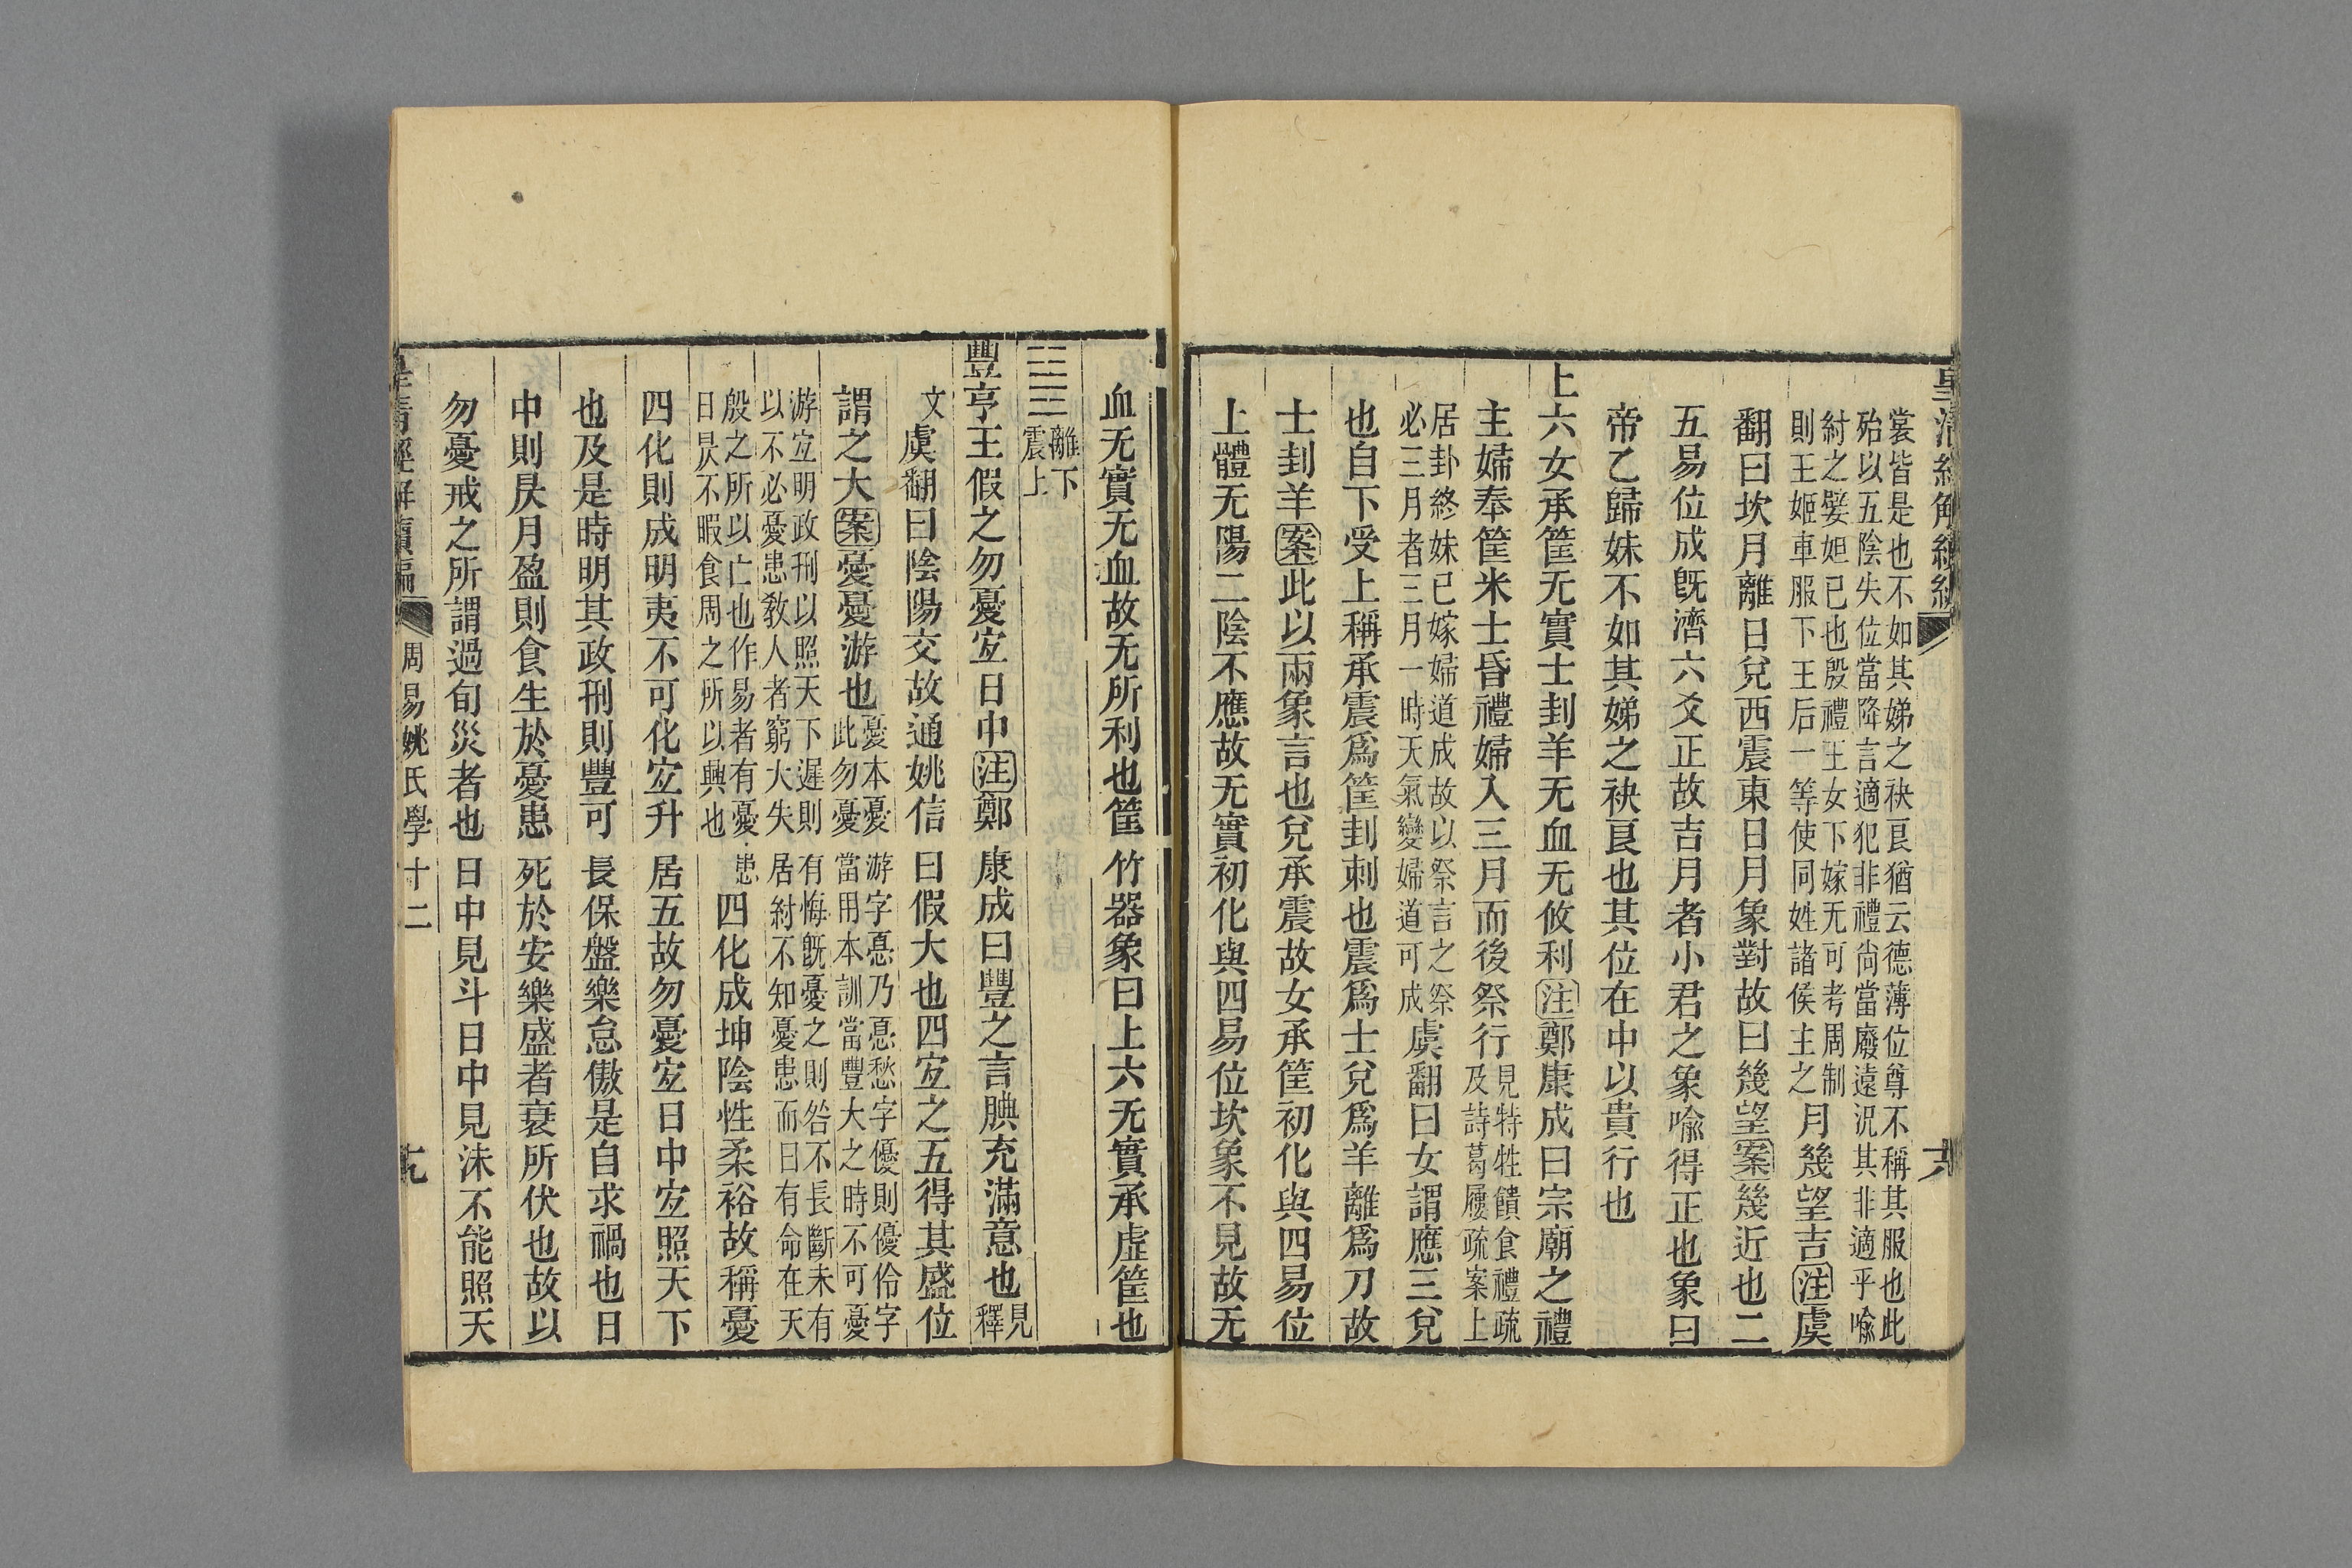 皇清經解續編
裳皆是也不如其娣之袂良猶云德薄位尊不稱其服也此
殆以五陰失位當降言適犯非禮尙當廢遠況其非適乎喩
紂之嬖妲已也殷禮王女下嫁无可考周制
則王姬車服下王后一等使同姓諸侯主之
月幾望吉注虞
翻曰坎月離日兌西震東日月象對故曰幾望案幾近也二
五易位成旣濟六爻正故吉月者小君之象喩得正也象曰
帝乙歸妹不如其娣之袂良也其位在中以貴行也
上六女承筐无實士刲羊无血无攸利注鄭康成曰宗廟之禮
主婦奉筐米士昏禮婦入三月而後祭行
見特牲饋食禮疏
及詩葛屨疏案上
居卦終妹已嫁婦道成故以祭言之祭
必三月者三月一時天氣變婦道可成
虞翻曰女謂應三兌
也自下受上稱承震爲筐刲刺也震爲士兌爲羊離爲刀故
士刲羊案此以兩象言也兌承震故女承筐初化與四易位
上體无陽二陰不應故无實初化與四易位坎象不見故无
血无實无血故无所利也筐竹器象曰上六无實承虛筐也
離下
震上
豐亨王假之勿憂宐日中注鄭康成曰豐之言腆充滿意也
見
釋
文
虞翻曰陰陽交故通姚信曰假大也四宐之五得其盛位
謂之大案憂憂游也
憂本憂游字惪乃惪愁字優則優伶字
此勿憂當用本訓當豐大之時不可憂
游宐明政刑以照天下遲則有悔旣憂之則咎不長斷未有
以不必憂患敎人者窮大失居紂不知憂患而曰有命在天
殷之所以亡也作易者有憂患
日昃不暇食周之所以興也
四化成坤陰性柔裕故稱憂
四化則成明夷不可化宐升居五故勿憂宐日中宐照天下
也及是時明其政刑則豐可長保盤樂怠傲是自求禍也日
中則昃月盈則食生於憂患死於安樂盛者衰所伏也故以
勿憂戒之所謂過旬災者也日中見斗日中見沬不能照天
皇淸經解續編
周易姚氏學十二
九